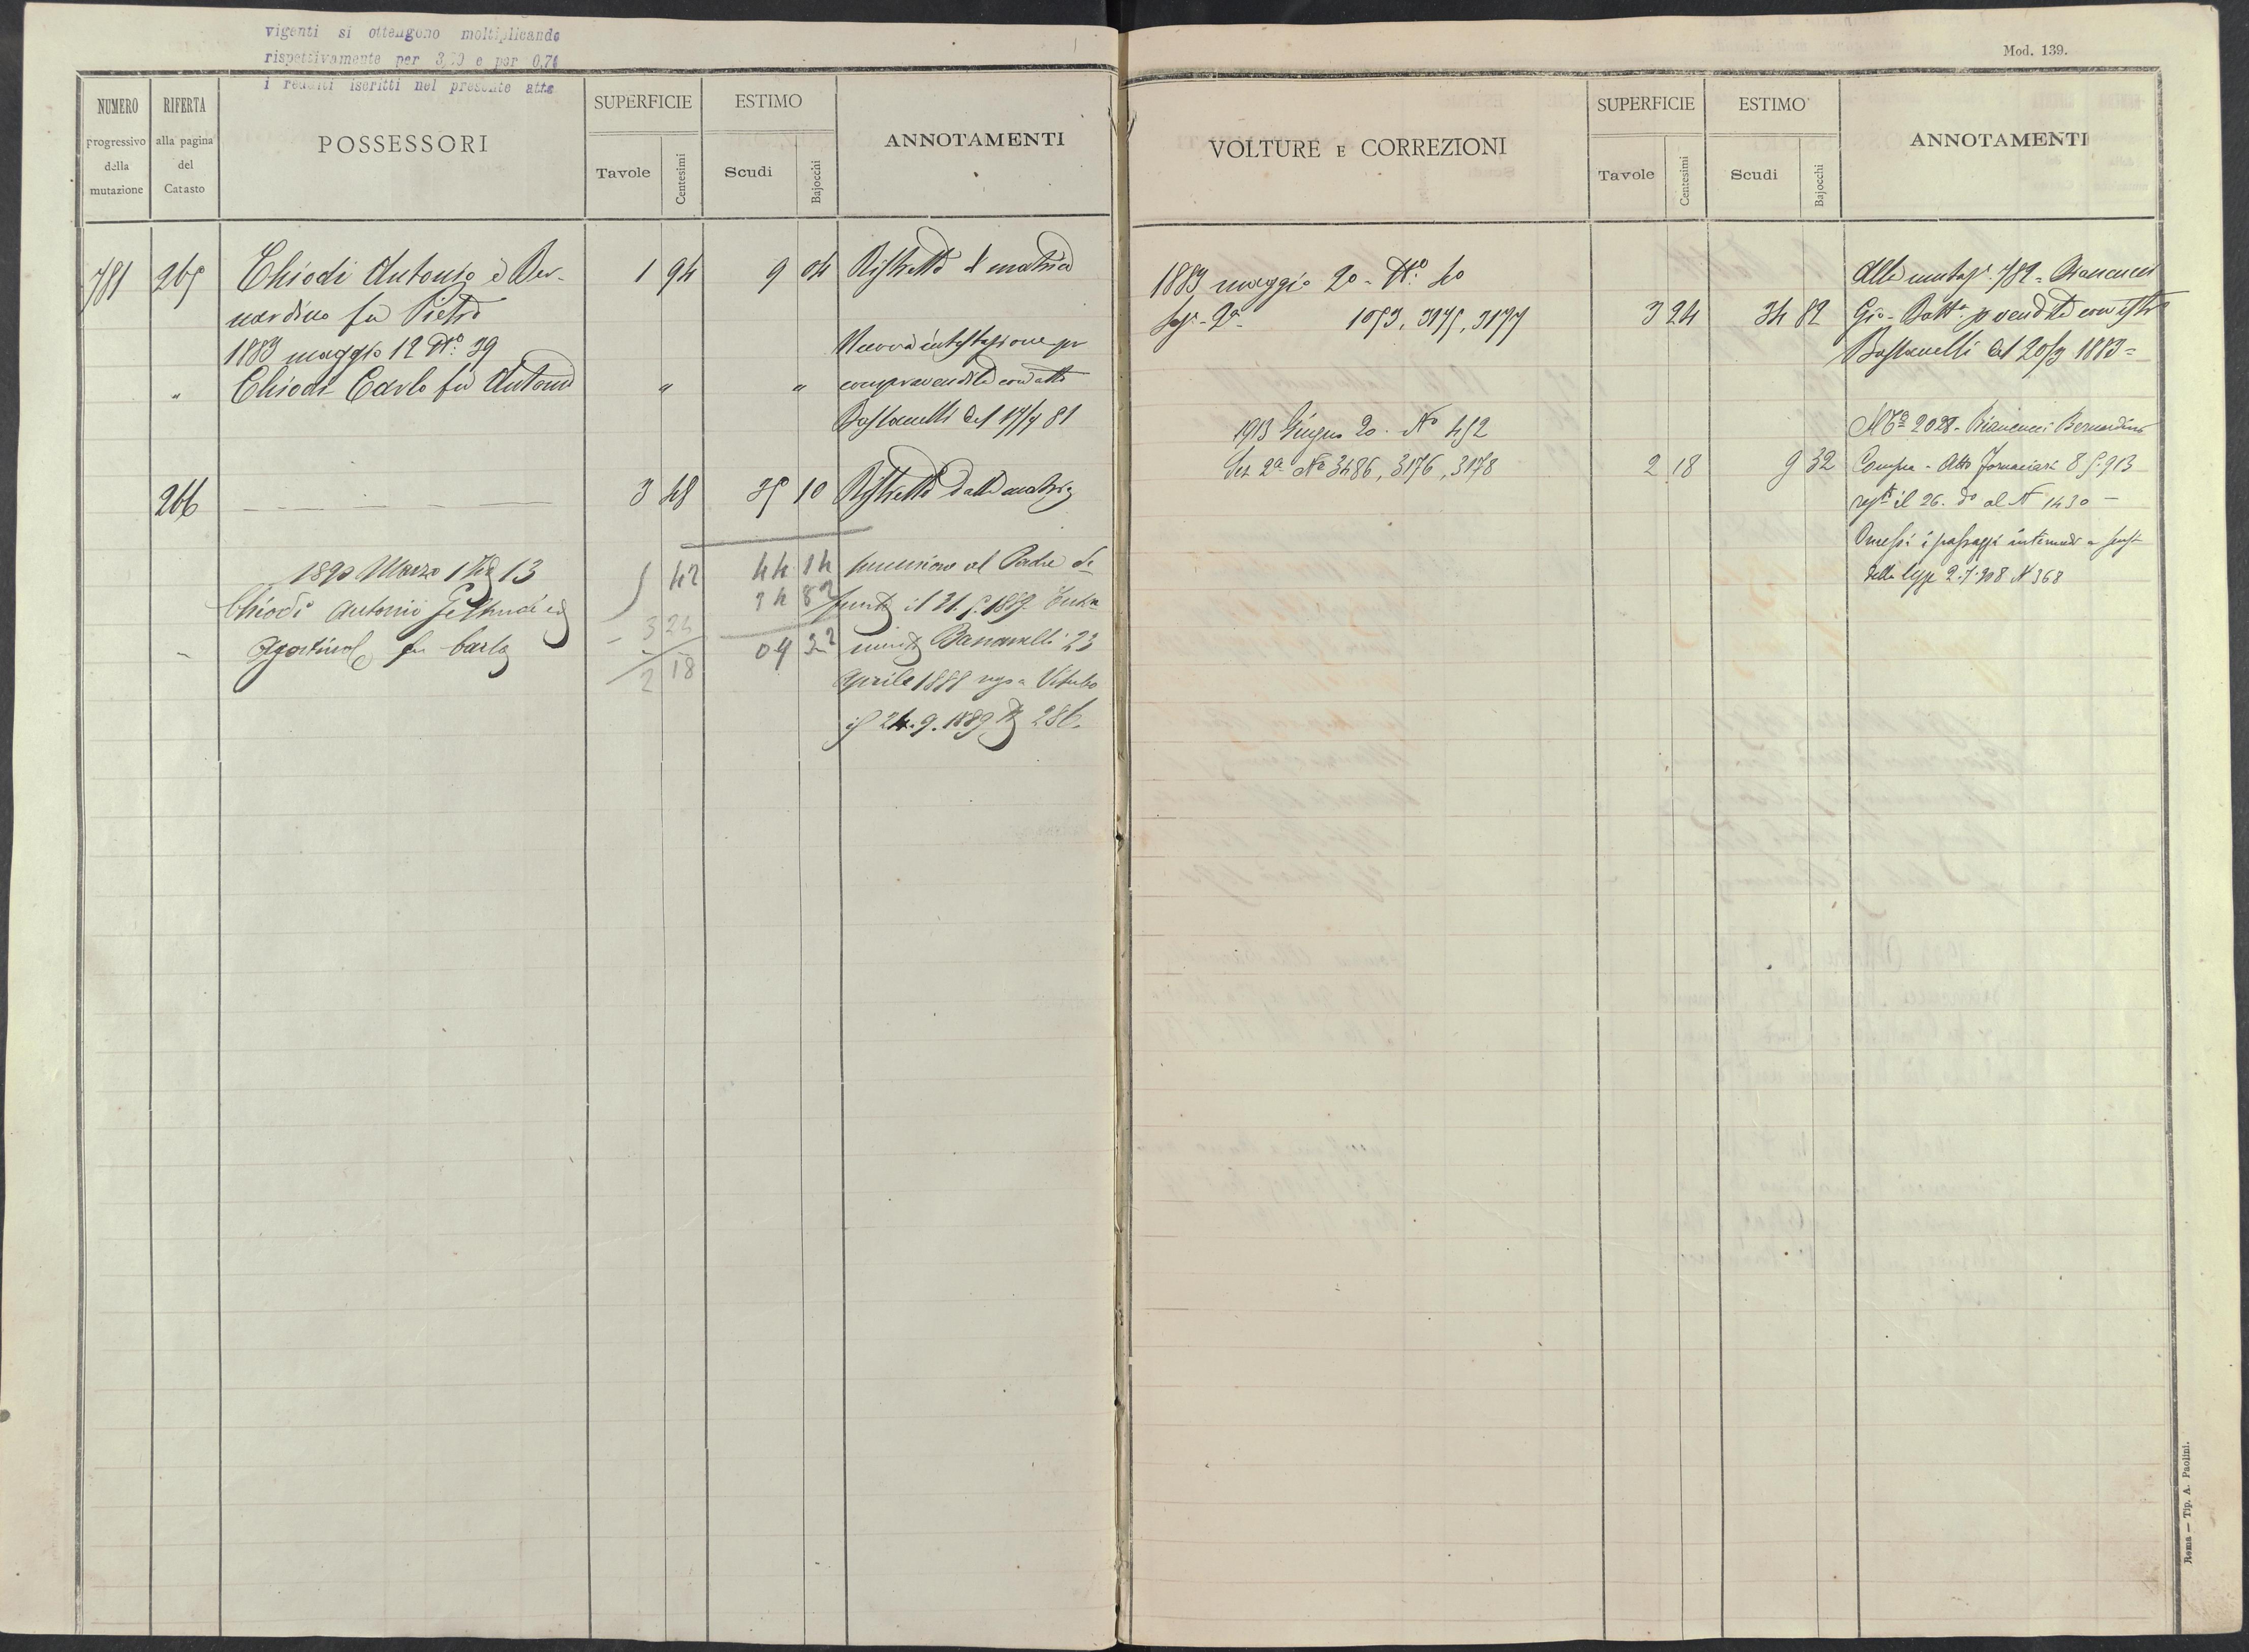 vigenti si ottengono moltiplicando
rispettivamente per 3,30 e per 0,74
i redditi iscritti nel presente atto
NUMERO
progressivo
della
mutazione
RIFERTA
alla pagina
del
Catasto
POSSESSORI
SUPERFICIE
Tavole
Centesimi
ESTIMO
Scudi
Bajocchi
ANNOTAMENTI
781 265 Chiodi Antonio e Ber- 1 94 9 04
nardino fu Pietro
1883 maggio 12 N.º 39
" Chiodi Carlo fu Antonio " "
Nuova intestazione per
compravendita con atto
Bastianelli del 17/4 81
266 3 48 35 10
1890 Marzo 1 N 13
Chiodi Antonio Geltrude ed
Agostino fu Carlo
5 42 44 14
34 82
- 3 24
2 18 09 32
successione al Padre de
funto il 21.5.1889
23
Aprile 1888 Viterbo
il 24.9.1889 N 286.
Mod. 139.
VOLTURE E CORREZIONI
SUPERFICIE
Tavole
Centesimi
ESTIMO
Scudi
Bajocchi
ANNOTAMENTI
1883 maggio 20 - N.º 40
Sez.e 2a 1053, 3175, 3177 3 24 34 82
Alla mutaz.e 782 = Biancucci
Gio. Batta. p vendita con istro
Bastianelli del 20/3 1883 =
1913 Giugno 20. No 452
Sez 2a Ni 3486, 3176, 3178 2 18 9 32
Mta 2028. Biancucci Bernardino
Compra - Atto Fornaciari 8.5.913
regto il 26. do al N 1430 -
Omessi i passaggi intermedi a sensi
della legge 2.7.908 N 368
Roma — Tip. A. Paolini.